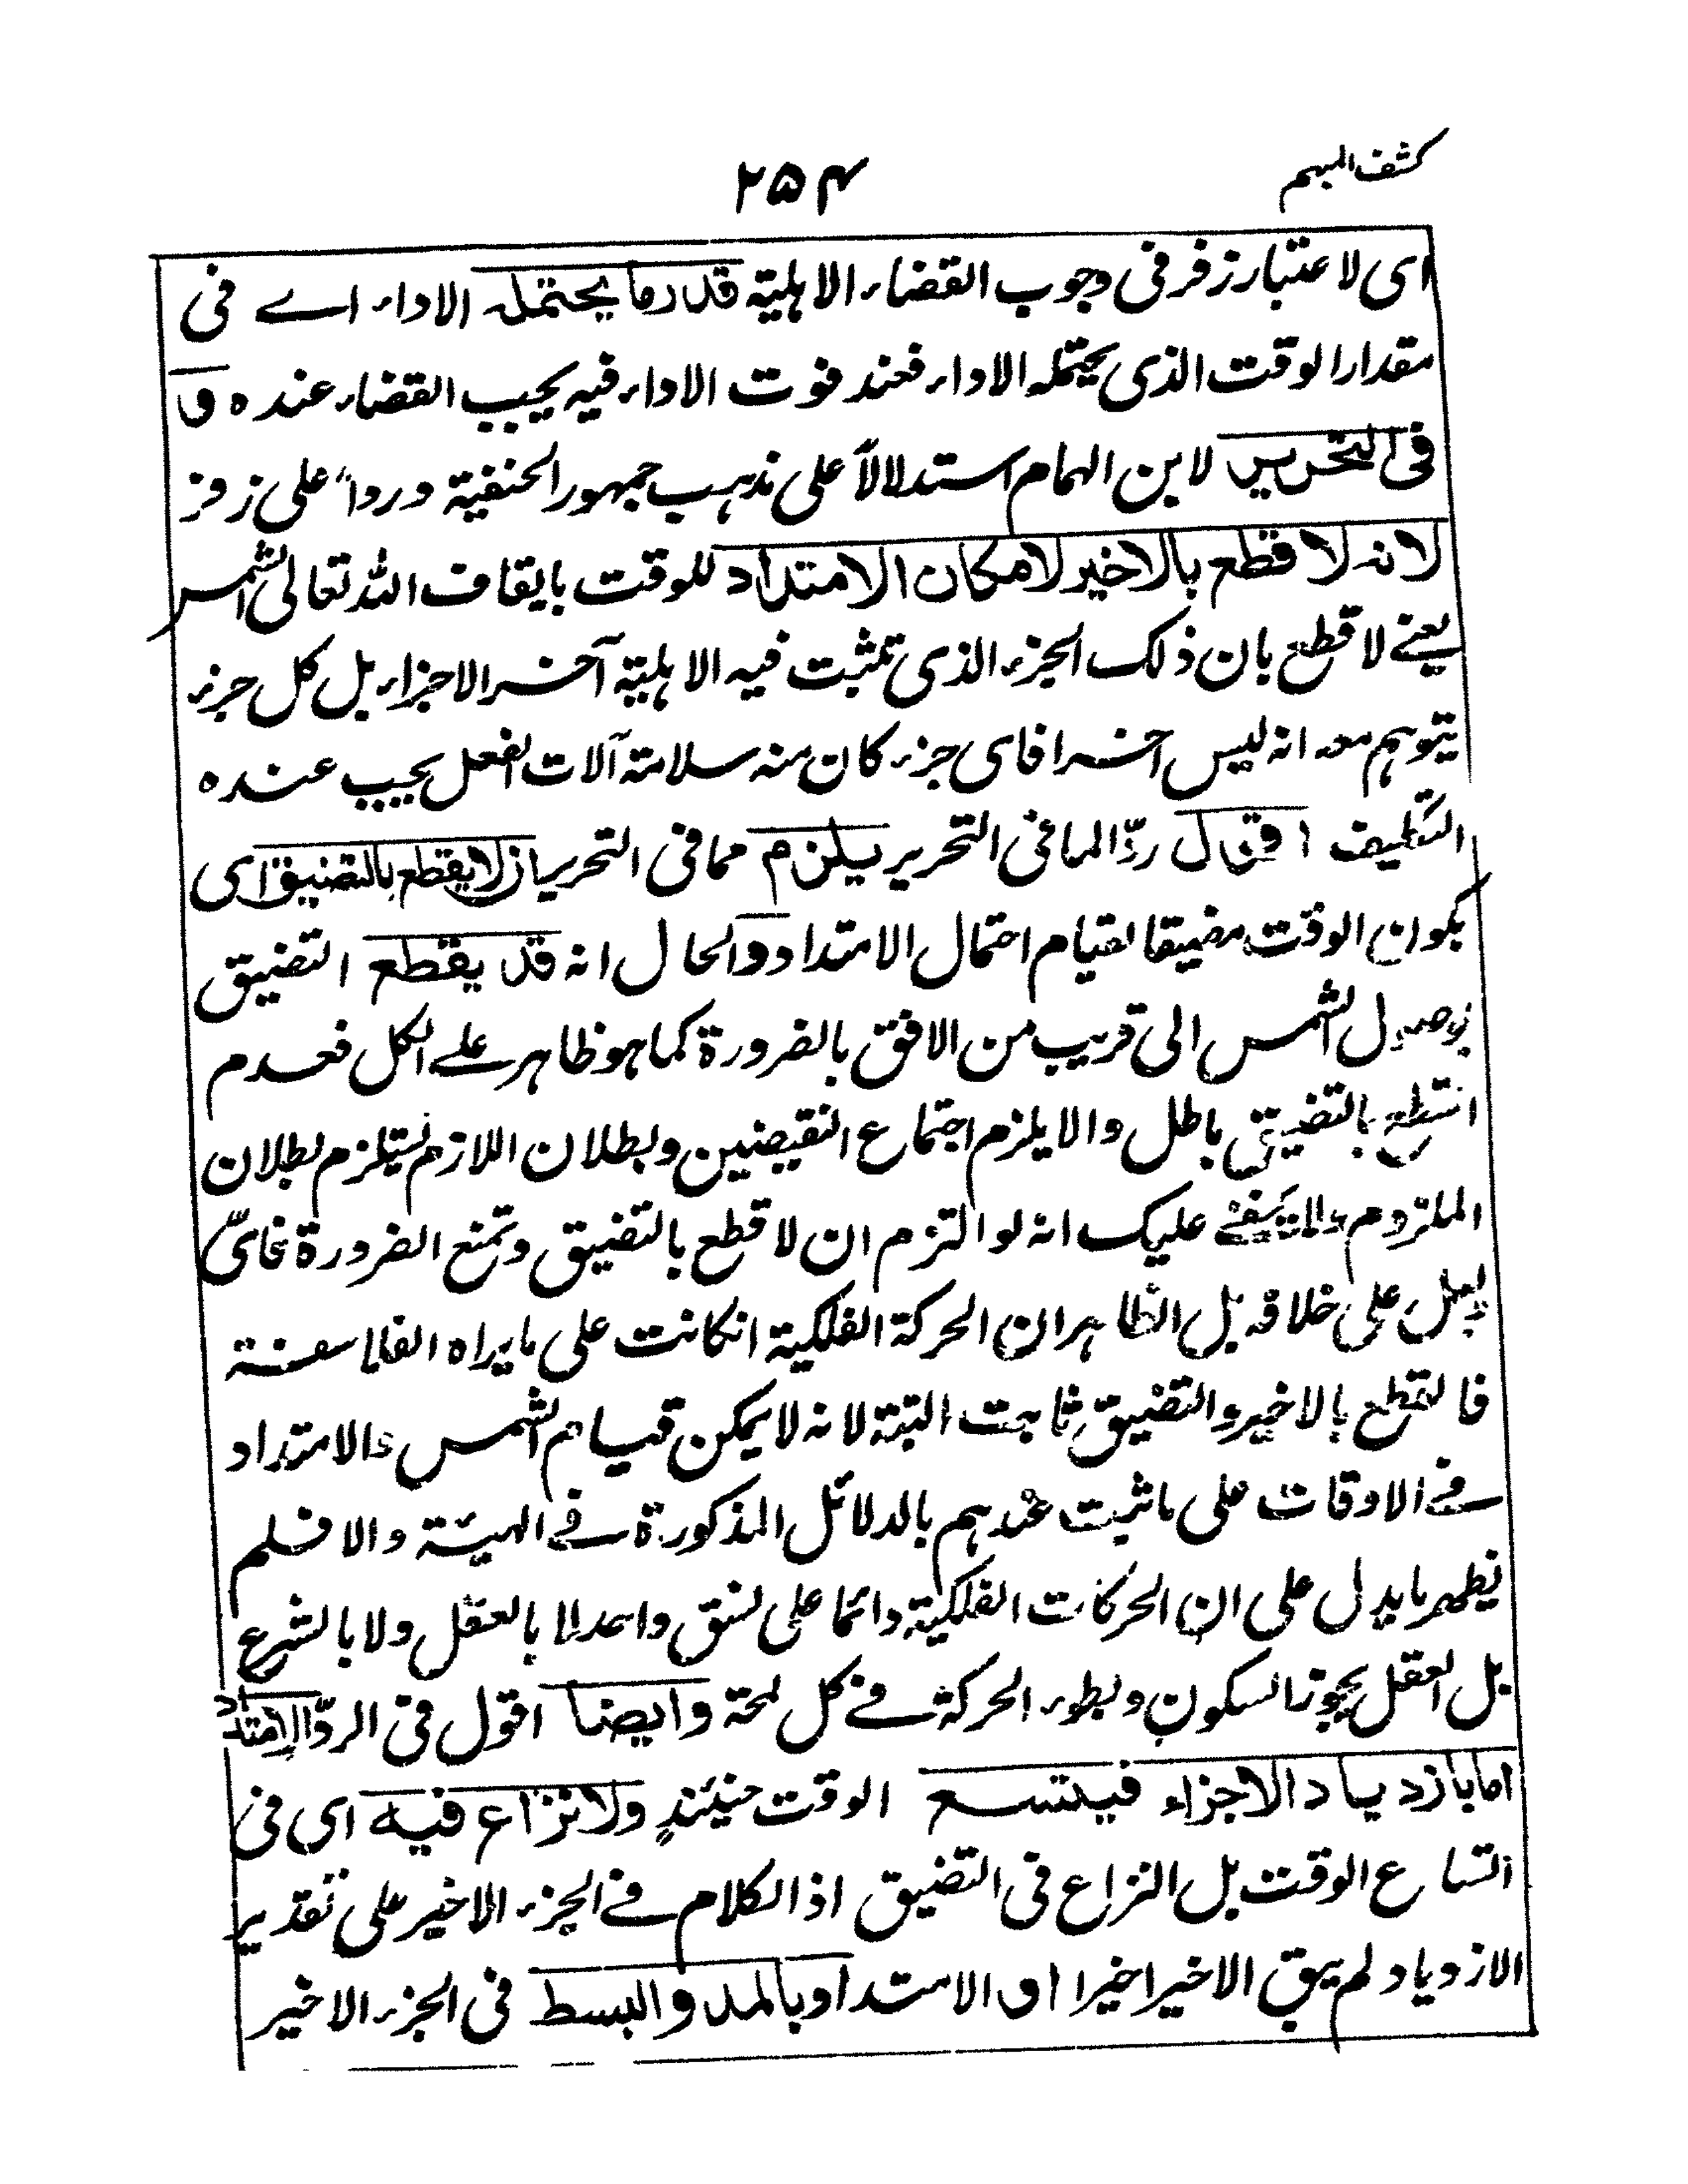 كشف المبهم
۲۵۴
اى لاعتبار زفر فى وجوب القضاء الاهلية قدر ما يحتمله الاداء اے فى
مقدار الوقت الذى يحتمله الاداء فعند فوت الاداء فيه يجب القضاء عنده و
فى التحرير لابن الهمام استدلالاً على مذهب جمهور الحنفية ورداً على زفر
لانه لا قطع بالاخير لامكان الامتداد للوقت بايقاف الله تعالى الشمس
يعنے لا قطع بان ذلك الجزء الذى تثبت فيه الاهلية آخر الاجزاء بل كل جزء
يتوهم معه انه ليس اخرا فاى جزء كان منه سلامة آلات الفعل يجب عنده
التكليف اقول ردّا لما فى التحرير يلزم مما فى التحرير ان لا يقطع بالتضيق اى
بكون الوقت مضيقا لقيام احتمال الامتداد والحال انه قد يقطع التضيق
بوصول الشمس الى قريب من الافق بالضرورة كما هو ظاهر علے الكل فعدم
القطع بالتضيق باطل والا يلزم اجتماع النقيضين وبطلان اللازم يستلزم بطلان
الملزوم ولا يخفے عليك انه لو التزم ان لا قطع بالتضيق وتمنع الضرورة فاىّ
دليل على خلافه بل الظاهر ان الحركة الفلكية انكانت على ما يراه الفلاسفة
فالقطع بالاخير والتضيق ثابت البتة لانه لا يمكن قيام الشمس والامتداد
فے الاوقات على ما ثبت عندهم بالدلائل المذكورة فے الهيئة والا فلم
يظهر ما يدل على ان الحركات الفلكية دائما على نسق واحد لا بالعقل ولا بالشرع
بل العقل يجوز السكون وبطوء الحركة فے كل لمحة وايضا اقول فى الردّ الامتداد
اما بازدياد الاجزاء فيتسع الوقت حينئذٍ ولا نزاع فيه اى فى
اتساع الوقت بل النزاع فى التضيق اذ الكلام فے الجزء الاخير على تقدير
الازدياد لم يبق الاخير اخيرا او الامتداد بالمد والبسط فى الجزء الاخير